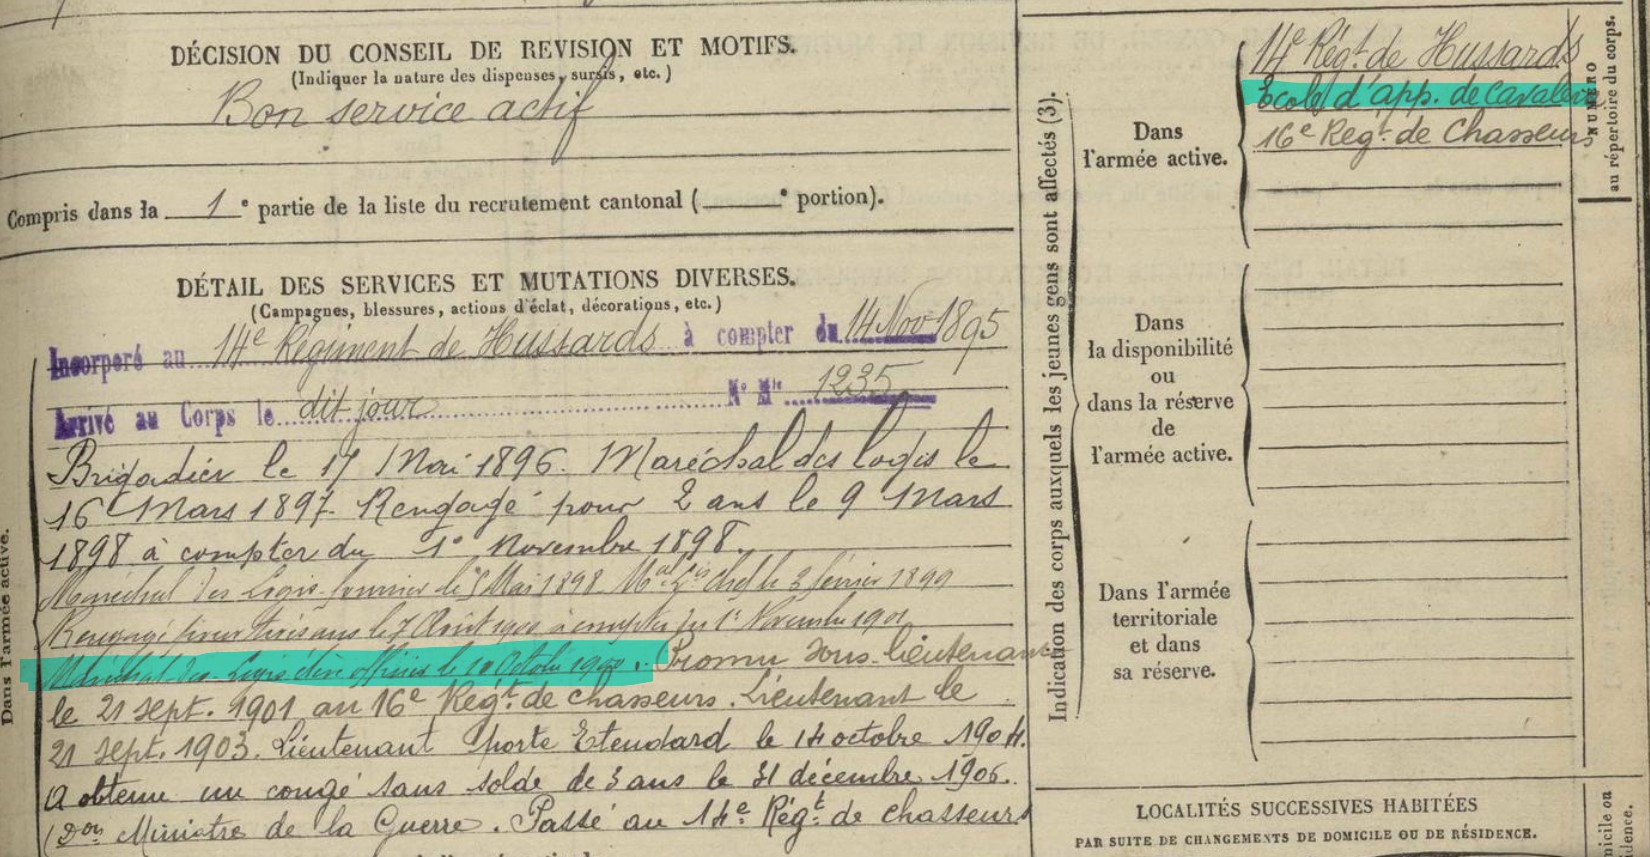 DÉCISION DU CONSEIL DE REVISION ET MOTIFS.
(Indiquer la nature des dispenses, sursis, etc.)
Bon service actif
Compris dans la 1e partie de la liste du recrutement cantonal ( e portion).
DÉTAIL DES SERVICES ET MUTATIONS DIVERSES.
(Campagnes, blessures, actions d'éclat, décorations, etc.)
Incorporé au 14e Régiment de Hussards à compter du 14 Nov 1895
Arrivé au Corps le dit jour No Mle 1235
Brigadier le 17 Mai 1896. Maréchal des logis le
16 Mars 1897. Rengagé pour 2 ans le 9 Mars
1898 à compter du 1er Novembre 1898.
Maréchal des Logis fourrier le 5 Mai 1898 Mal Gis chef le 3 février 1899
Rengagé pour trois ans le 7 Août 1900 à compter du 1er Novembre 1901
Maréchal des Logis élève officier le 10 Octobre 1900. Promu Sous-lieutenant
le 21 sept. 1901 au 16e Régt de chasseurs. Lieutenant le
21 sept. 1903. Lieutenant porte Etendard le 14 octobre 1904.
A obtenu un congé sans solde de 3 ans le 31 décembre 1906.
(Don Ministre de la Guerre. Passé au 14e Régt de chasseurs
Dans l'armée active.
Indication des corps auxquels les jeunes gens sont affectés (3).
Dans
l'armée active.
14e Régt de Hussards
Ecole d'app. de Cavalerie
16e Regt de Chasseurs
Dans
la disponibilité
ou
dans la réserve
de
l'armée active.
Dans l'armée
territoriale
et dans
sa réserve.
NUMÉRO
au répertoire du corps.
LOCALITÉS SUCCESSIVES HABITÉES
PAR SUITE DE CHANGEMENTS DE DOMICILE OU DE RÉSIDENCE.